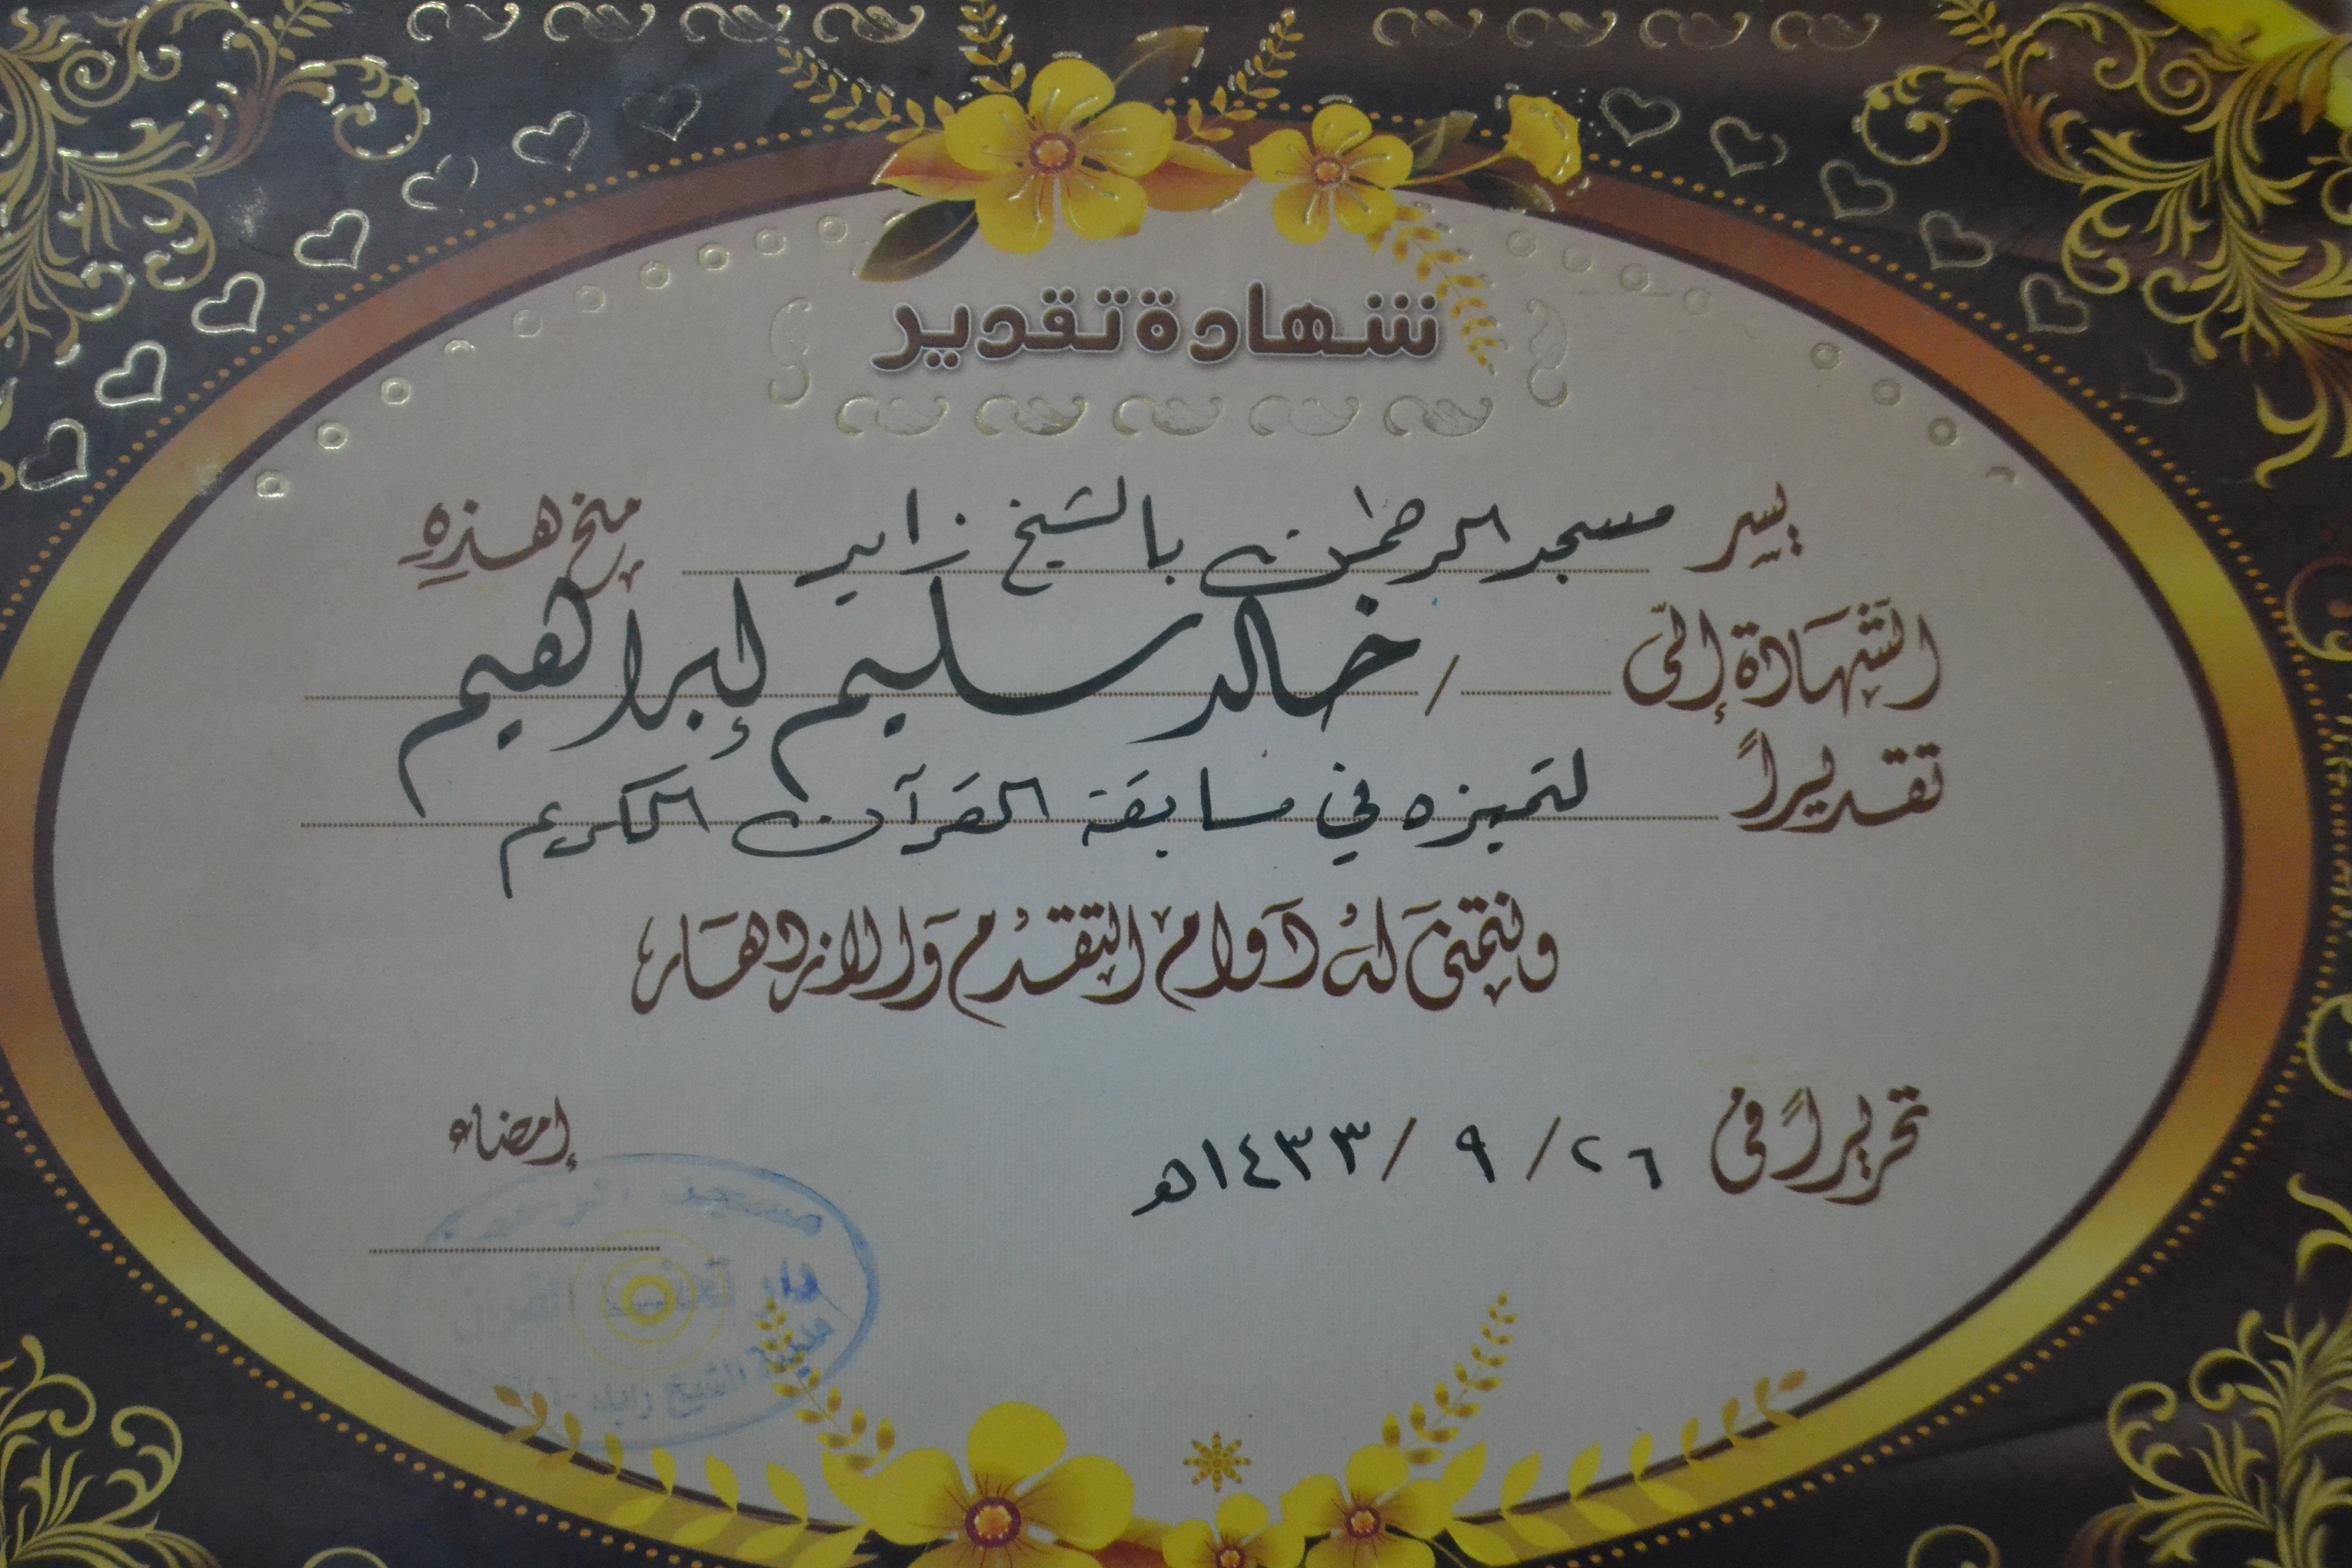 شهادة تقدير
يسر مسجد الرحمن بالشيخ زايد منح هذه
الشهادة إلى / خالد سليم إبراهيم
تقديراً لتميزه في مسابقة القرآن الكريم
ونتمنى له دوام التقدم والازدهار
تحريراً فى ٢٦ / ٩ / ١٤٣٣هـ
إمضاء
مسجد الرحمن
دار تحفيظ القرآن
الشيخ زايد